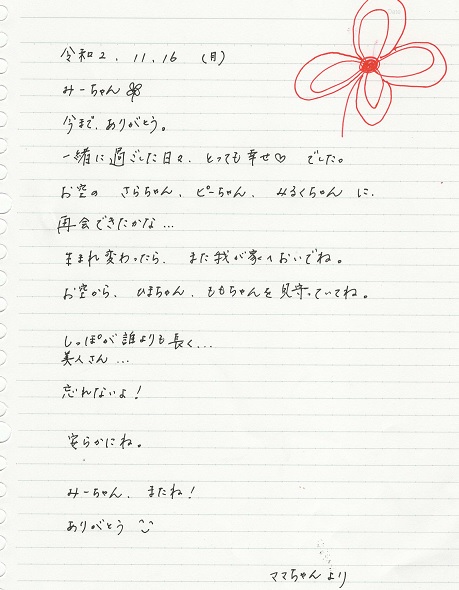 令和2.11.16 (月)
みーちゃん
今まで、ありがとう。
一緒に過ごした日々、とっても幸せ♡でした。
お空の さらちゃん、ピーちゃん、みるくちゃん に
再会できたかな...
生まれ変わったら、また我が家へおいでね。
お空から、ひまちゃん、ももちゃんを見守っていてね。
しっぽが誰よりも長く...
美人さん...
忘れないよ!
安らかにね。
みーちゃん、またね!
ありがとう
ママちゃんより